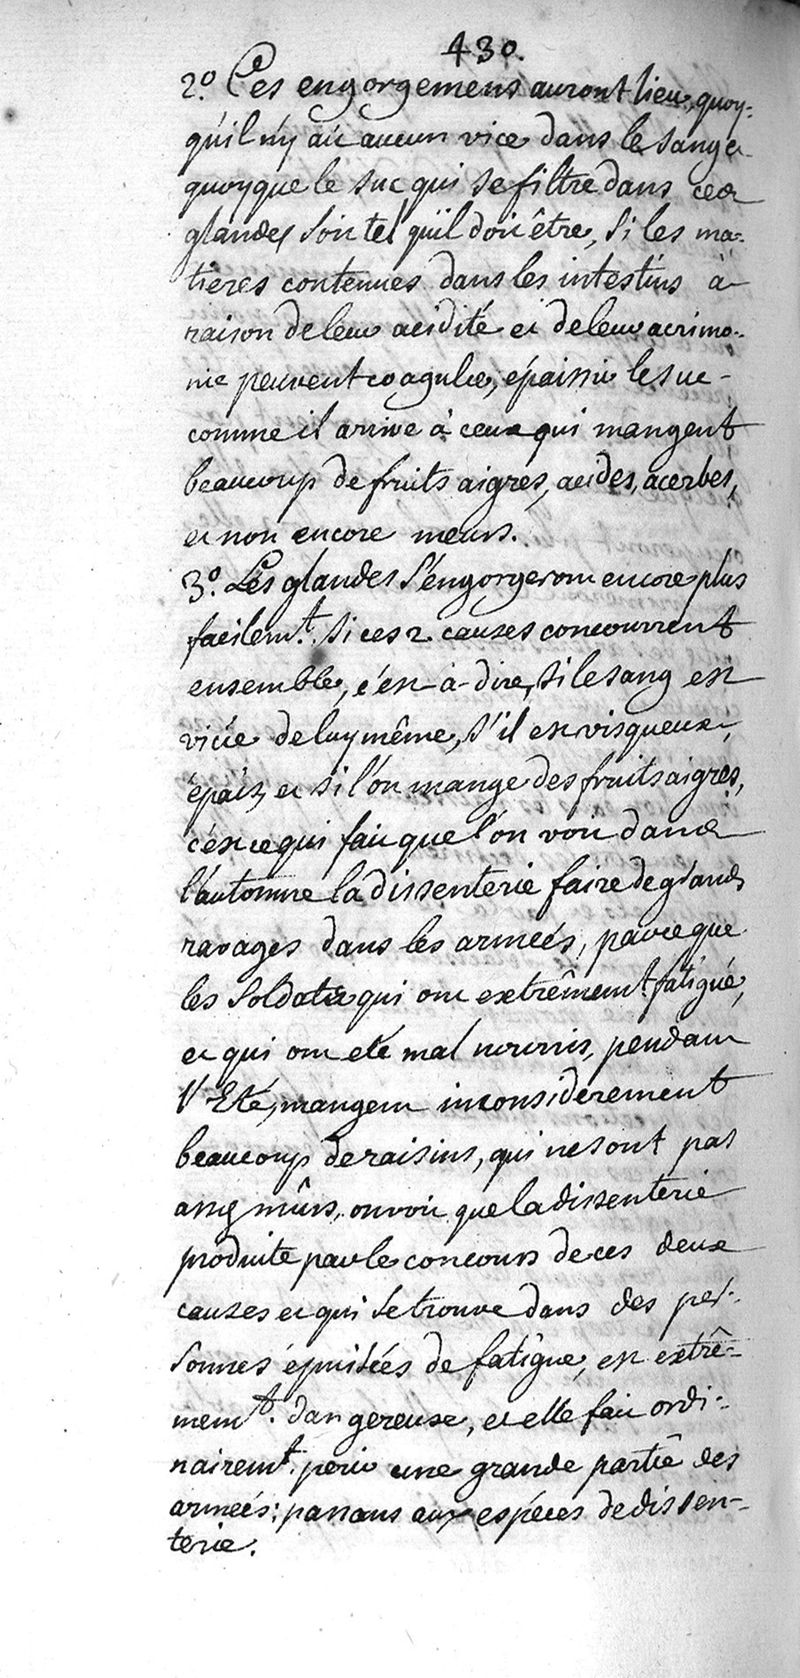 430.
2º. Ces engorgemens auront lieu, quoy-
qu'il n'y ait aucun vice dans le sang et
quoyque le suc qui se filtre dans ces
glandes soit tel qu'il doit être, si les ma-
tieres contenues dans les intestins à
raison de leur acidité et de leur acrimo-
nie peuvent coaguler, épaissir le suc -
comme il arrive à ceux qui mangent
beaucoup de fruits aigres, acides, acerbes,
et non encore meurs.
3º. Les glandes s'engorgeront encore plus
facilemt. si ces 2 causes concourrent
ensemble, c'est-à-dire, si le sang est
vicié de luy même, s'il est visqueux,
épais, et si l'on mange des fruits aigres,
c'est ce qui fait que l'on voit dans
l'automne la dissenterie faire de grands
ravages dans les armeés, parce que
les soldats qui ont extrêmemt. fatigué,
et qui ont eté mal nourris, pendant
l'Eté, mangent inconsiderement
beaucoup de raisins, qui ne sont pas
assez mûrs, on voit que la dissenterie
produite par le concours de ces deux
causes et qui se trouve dans des per-
sonnes épuisées de fatigue, est extrê-
memt. dangereuse, et elle fait ordi-
nairemt. perir une grande partie des
armeés: passons aux espéces de dissen-
terie.